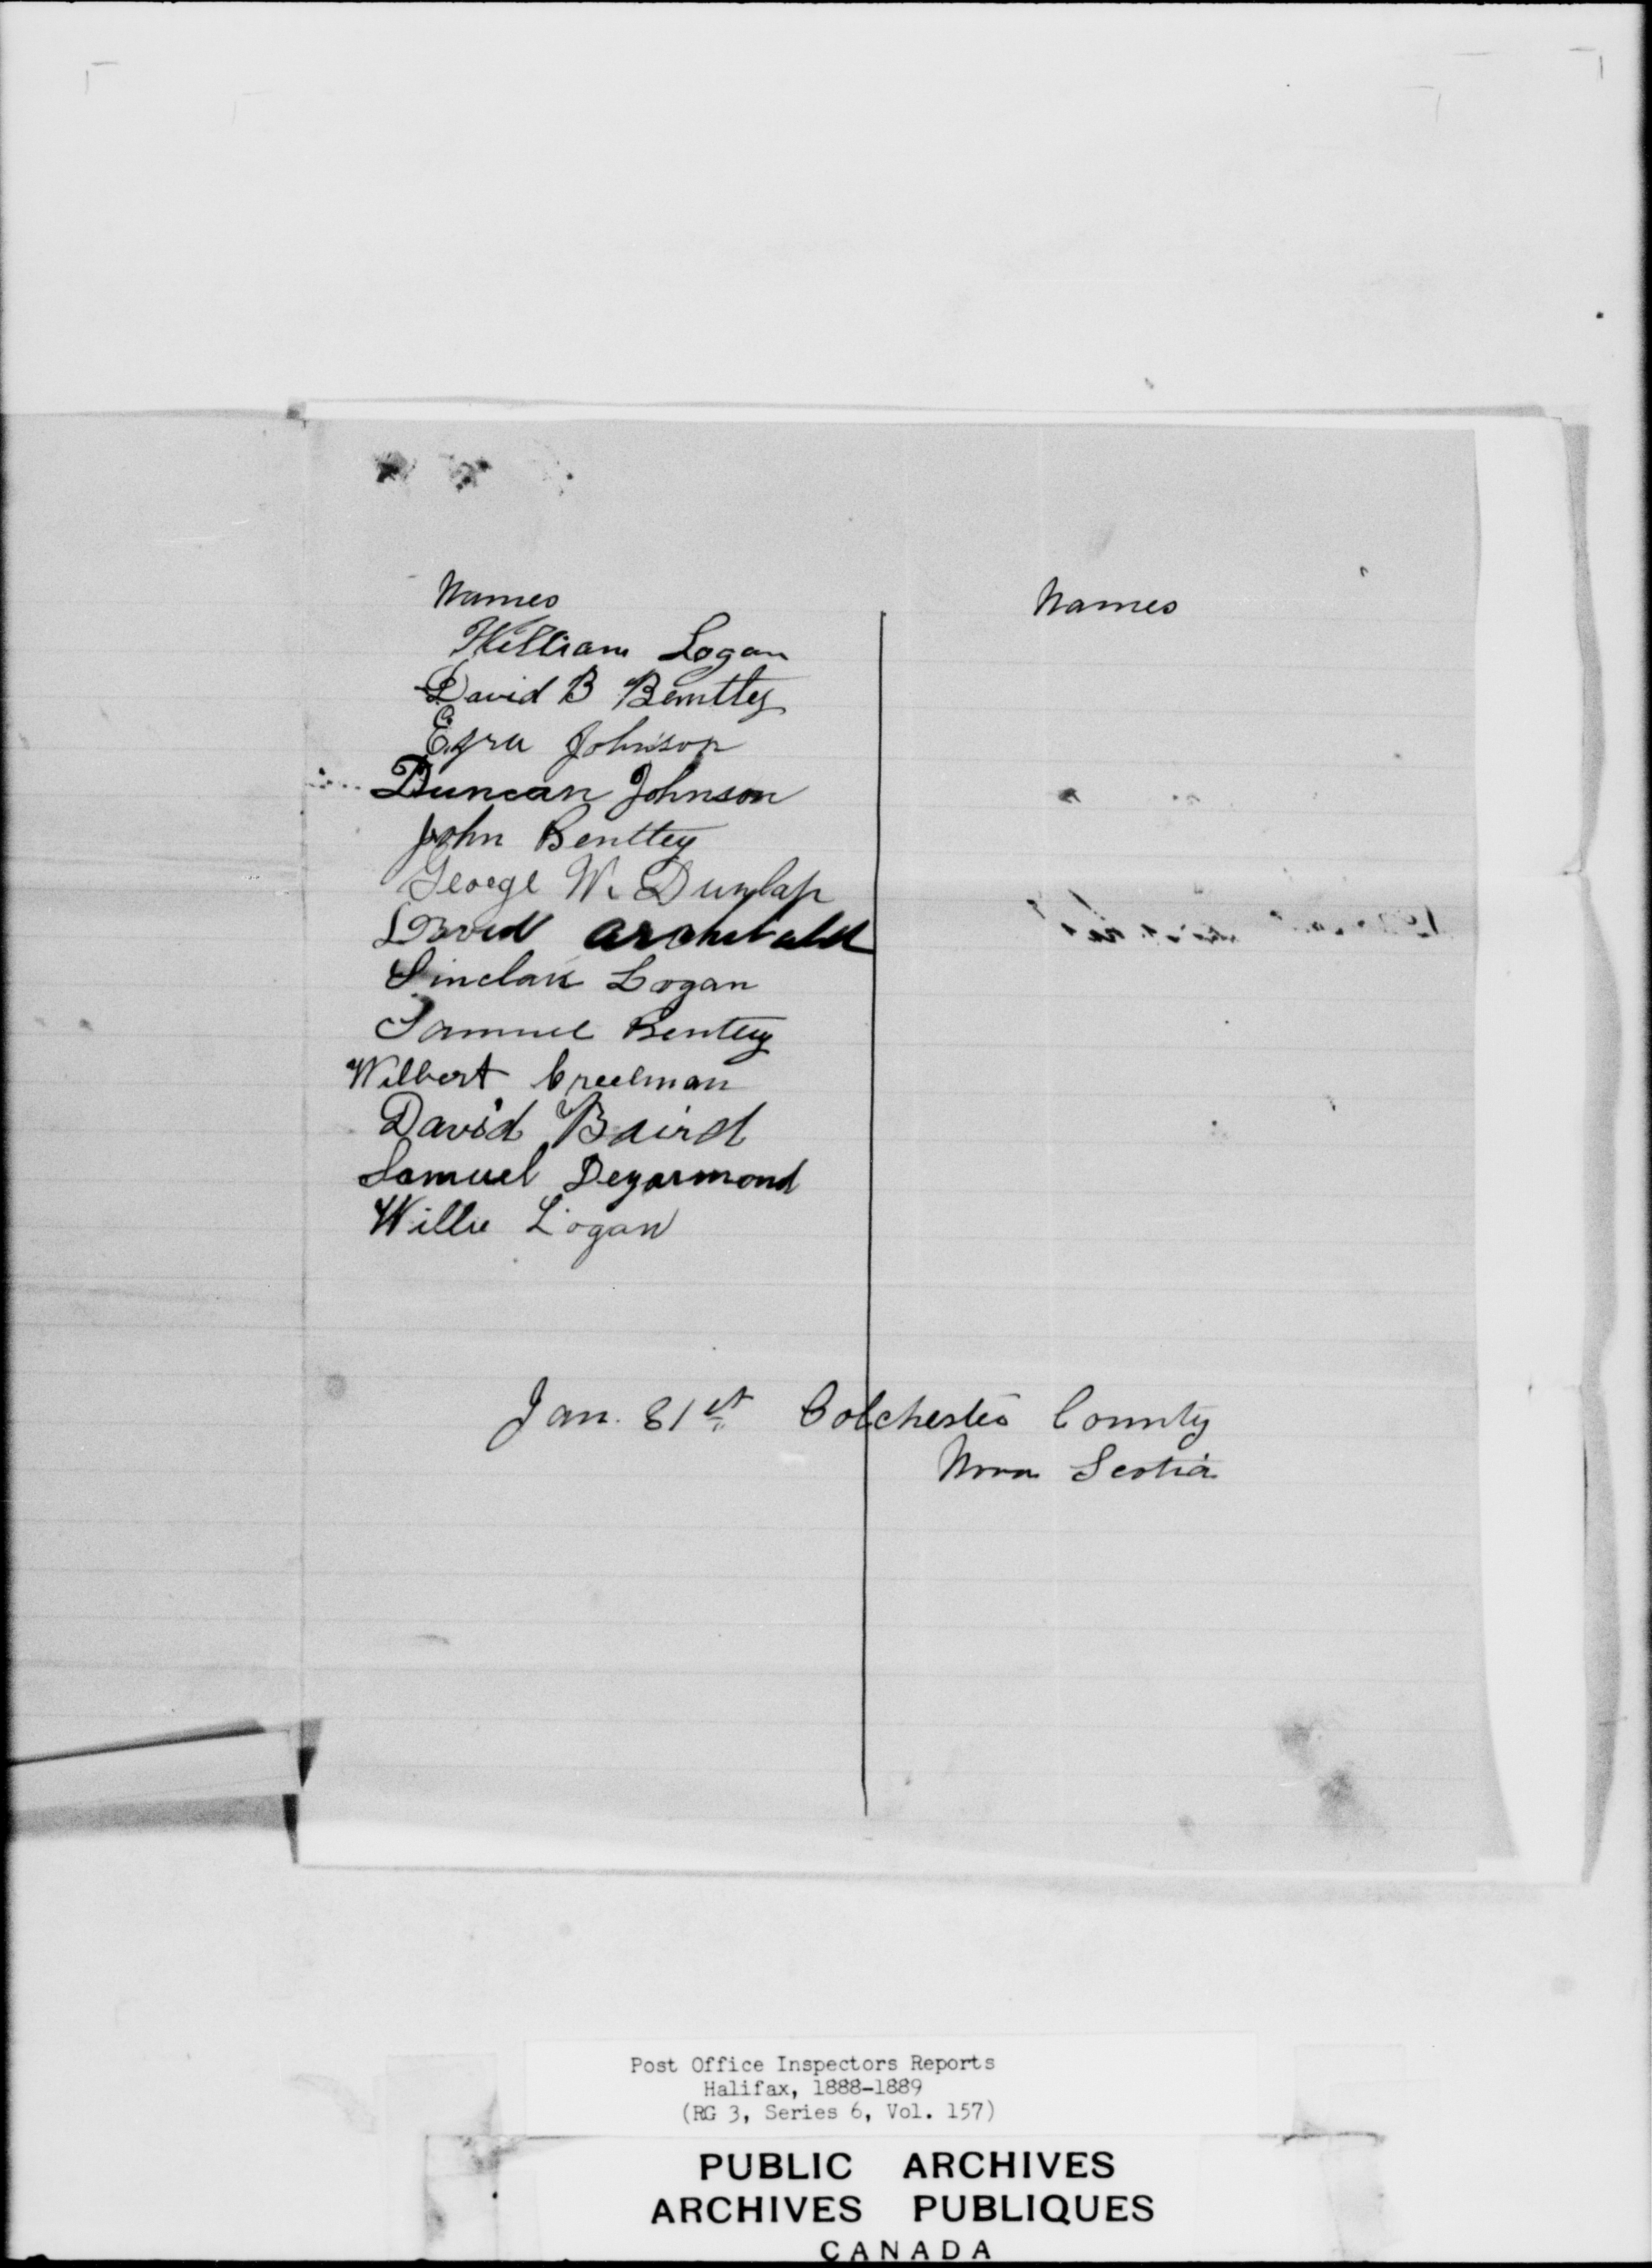 Names
Names
William Logan
David B Bentley
Ezra Johnson
Duncan Johnson
John Bentley
George W. Dunlap
David Archibald
Sinclair Logan
Samuel Bentley
Wilbert Creelman
David Baird
Samuel Degarmond
Willie Logan
Jan. 31st Colchester County
Nova Scotia
Post Office Inspectors Reports
Halifax, 1888-1889
(RG 3, Series 6, Vol. 157)
PUBLIC ARCHIVES
ARCHIVES PUBLIQUES
CANADA